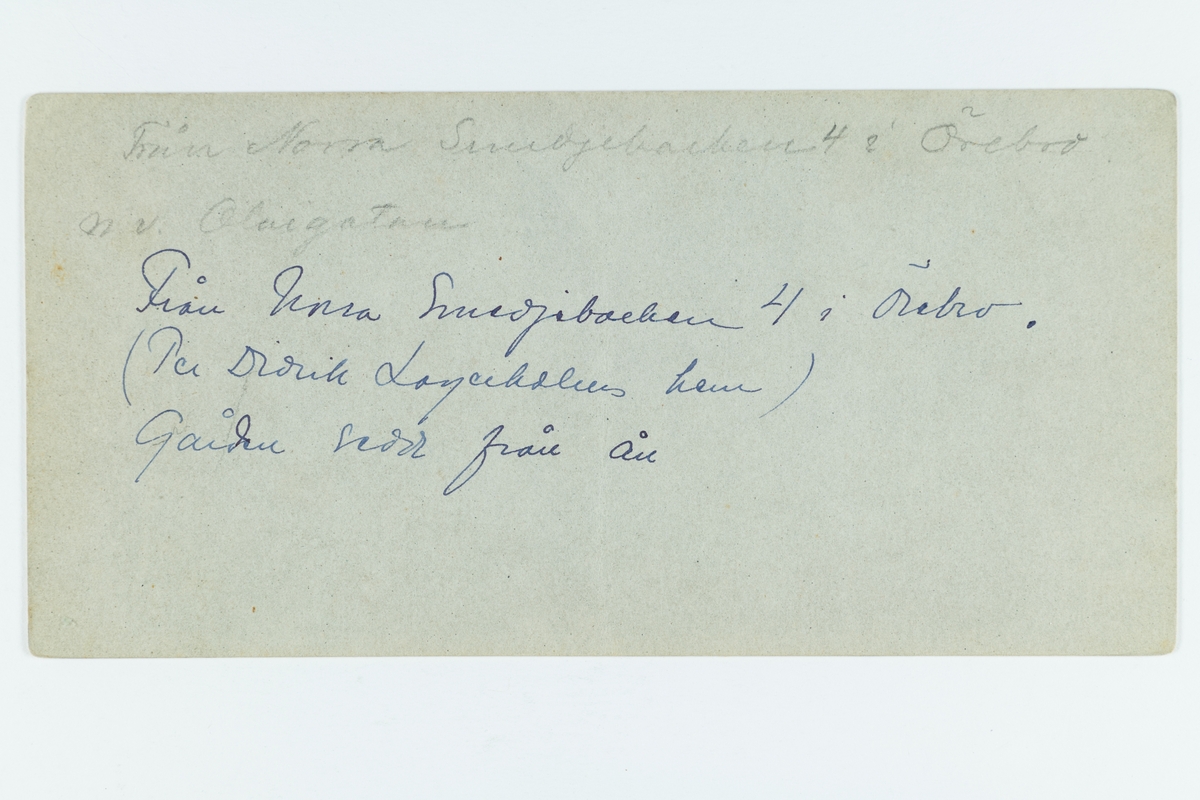 Från Norra Smedjebacken 4 i Örebro
n v. Olaigatan
Från Norra Smedjebacken 4 i Örebro.
(Per Didrik Lagerholms hem)
Gården sedd från ån